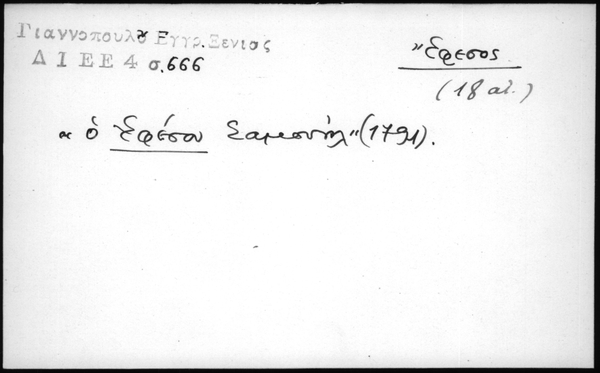 Γιαννοπουλου Εγγρ. Ξενιας
Δ Ι Ε Ε 4 σ. 666
Ἔφεσος
(18 αἰ.)
“ ὁ Ἐφέσου Σαμουήλ” (1791).